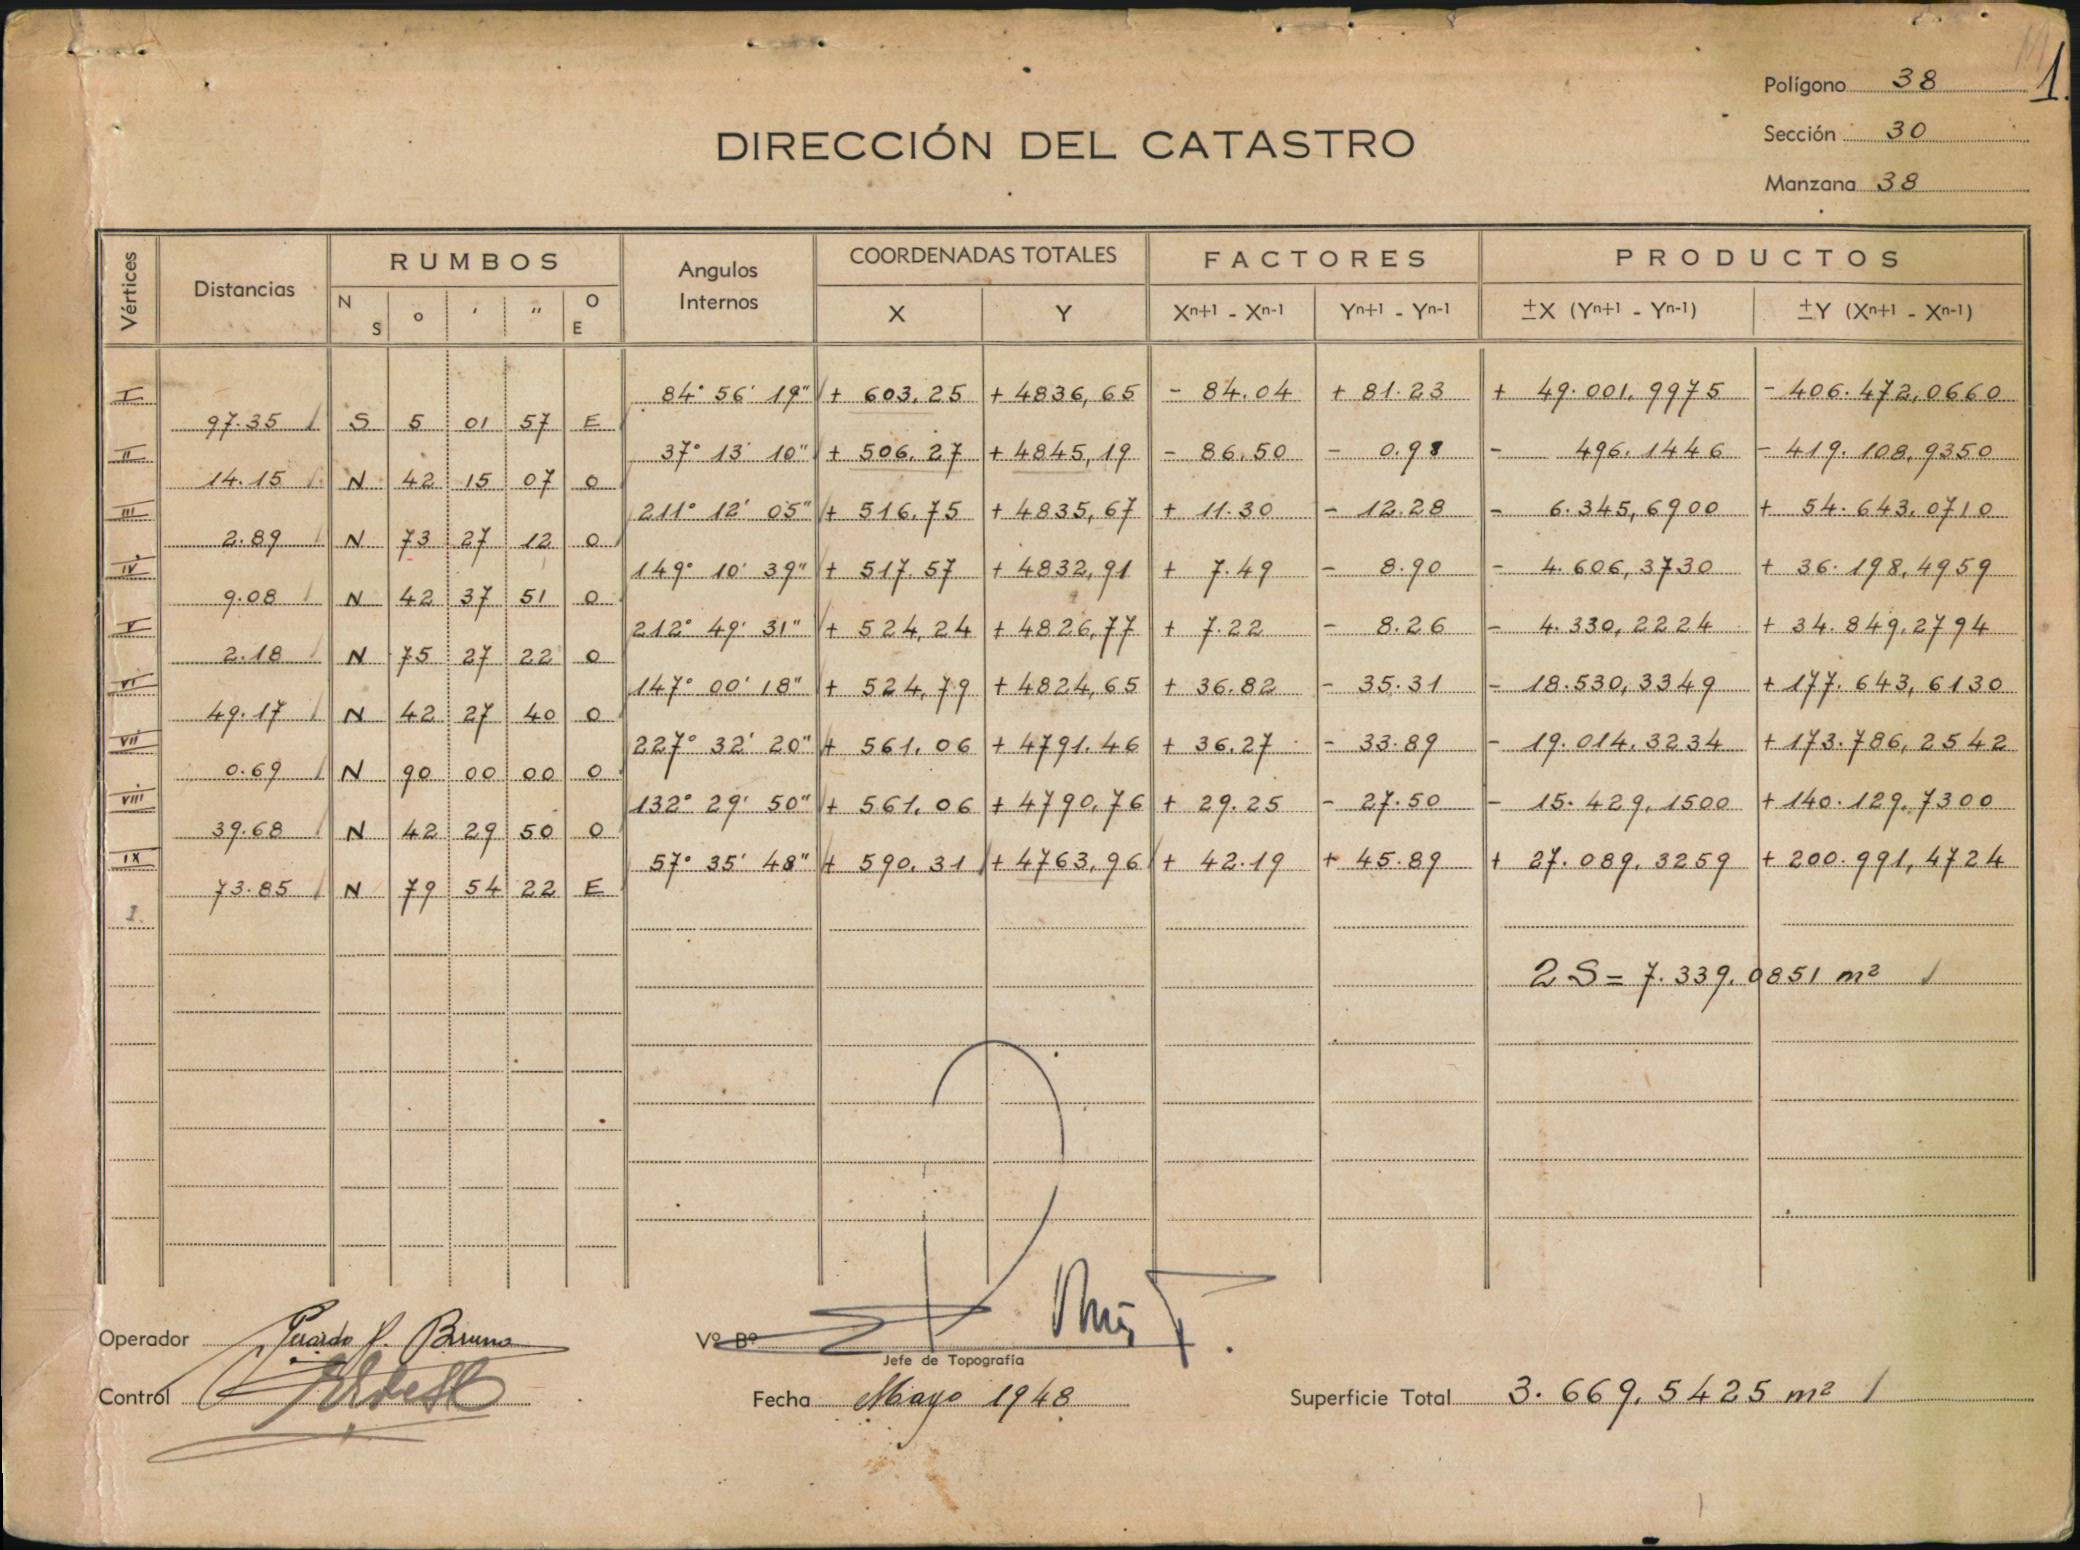 Polígono 38
1.
Sección 30
DIRECCIÓN DEL CATASTRO
Manzana 38
Vértices Distancias RUMBOS Angulos Internos COORDENADAS TOTALES FACTORES PRODUCTOS
N S o ' " O E X Y Xn+1 - Xn-1 Yn+1 - Yn-1 ±X (Yn+1 - Yn-1) ±Y (Xn+1 - Xn-1)
I 84° 56' 19" + 603.25 + 4836,65 - 84.04 + 81.23 + 49.001,9975 - 406.472,0660
97.35 S 5 01 57 E
II 37° 13' 10" + 506.27 + 4845,19 - 86.50 - 0.98 - 496.1446 - 419.108,9350
14.15 N 42 15 07 O
III 211° 12' 05" + 516.75 + 4835,67 + 11.30 - 12.28 - 6.345,6900 + 54.643.0710
2.89 N 73 27 12 O
IV 149° 10' 39" + 517.57 + 4832,91 + 7.49 - 8.90 - 4.606,3730 + 36.198,4959
9.08 N 42 37 51 O
V 212° 49' 31" + 524,24 + 4826,77 + 7.22 - 8.26 - 4.330,2224 + 34.849,2794
2.18 N 75 27 22 O
VI 147° 00' 18" + 524,79 + 4824,65 + 36.82 - 35.31 - 18.530,3349 + 177.643,6130
49.17 N 42 27 40 O
VII 227° 32' 20" + 561.06 + 4791.46 + 36.27 - 33.89 - 19.014.3234 + 173.786,2542
0.69 N 90 00 00 O
VIII 132° 29' 50" + 561.06 + 4790,76 + 29.25 - 27.50 - 15.429,1500 + 140.129,7300
39.68 N 42 29 50 O
IX 57° 35' 48" + 590.31 + 4763,96 + 42.19 + 45.89 + 27.089.3259 + 200.991,4724
73.85 N 79 54 22 E
I.
2 S = 7.339.0851 m²
Operador Gerardo P. Bruno
Vº Bº
Jefe de Topografía
Control
Fecha Mayo 1948
Superficie Total 3.669,5425 m²